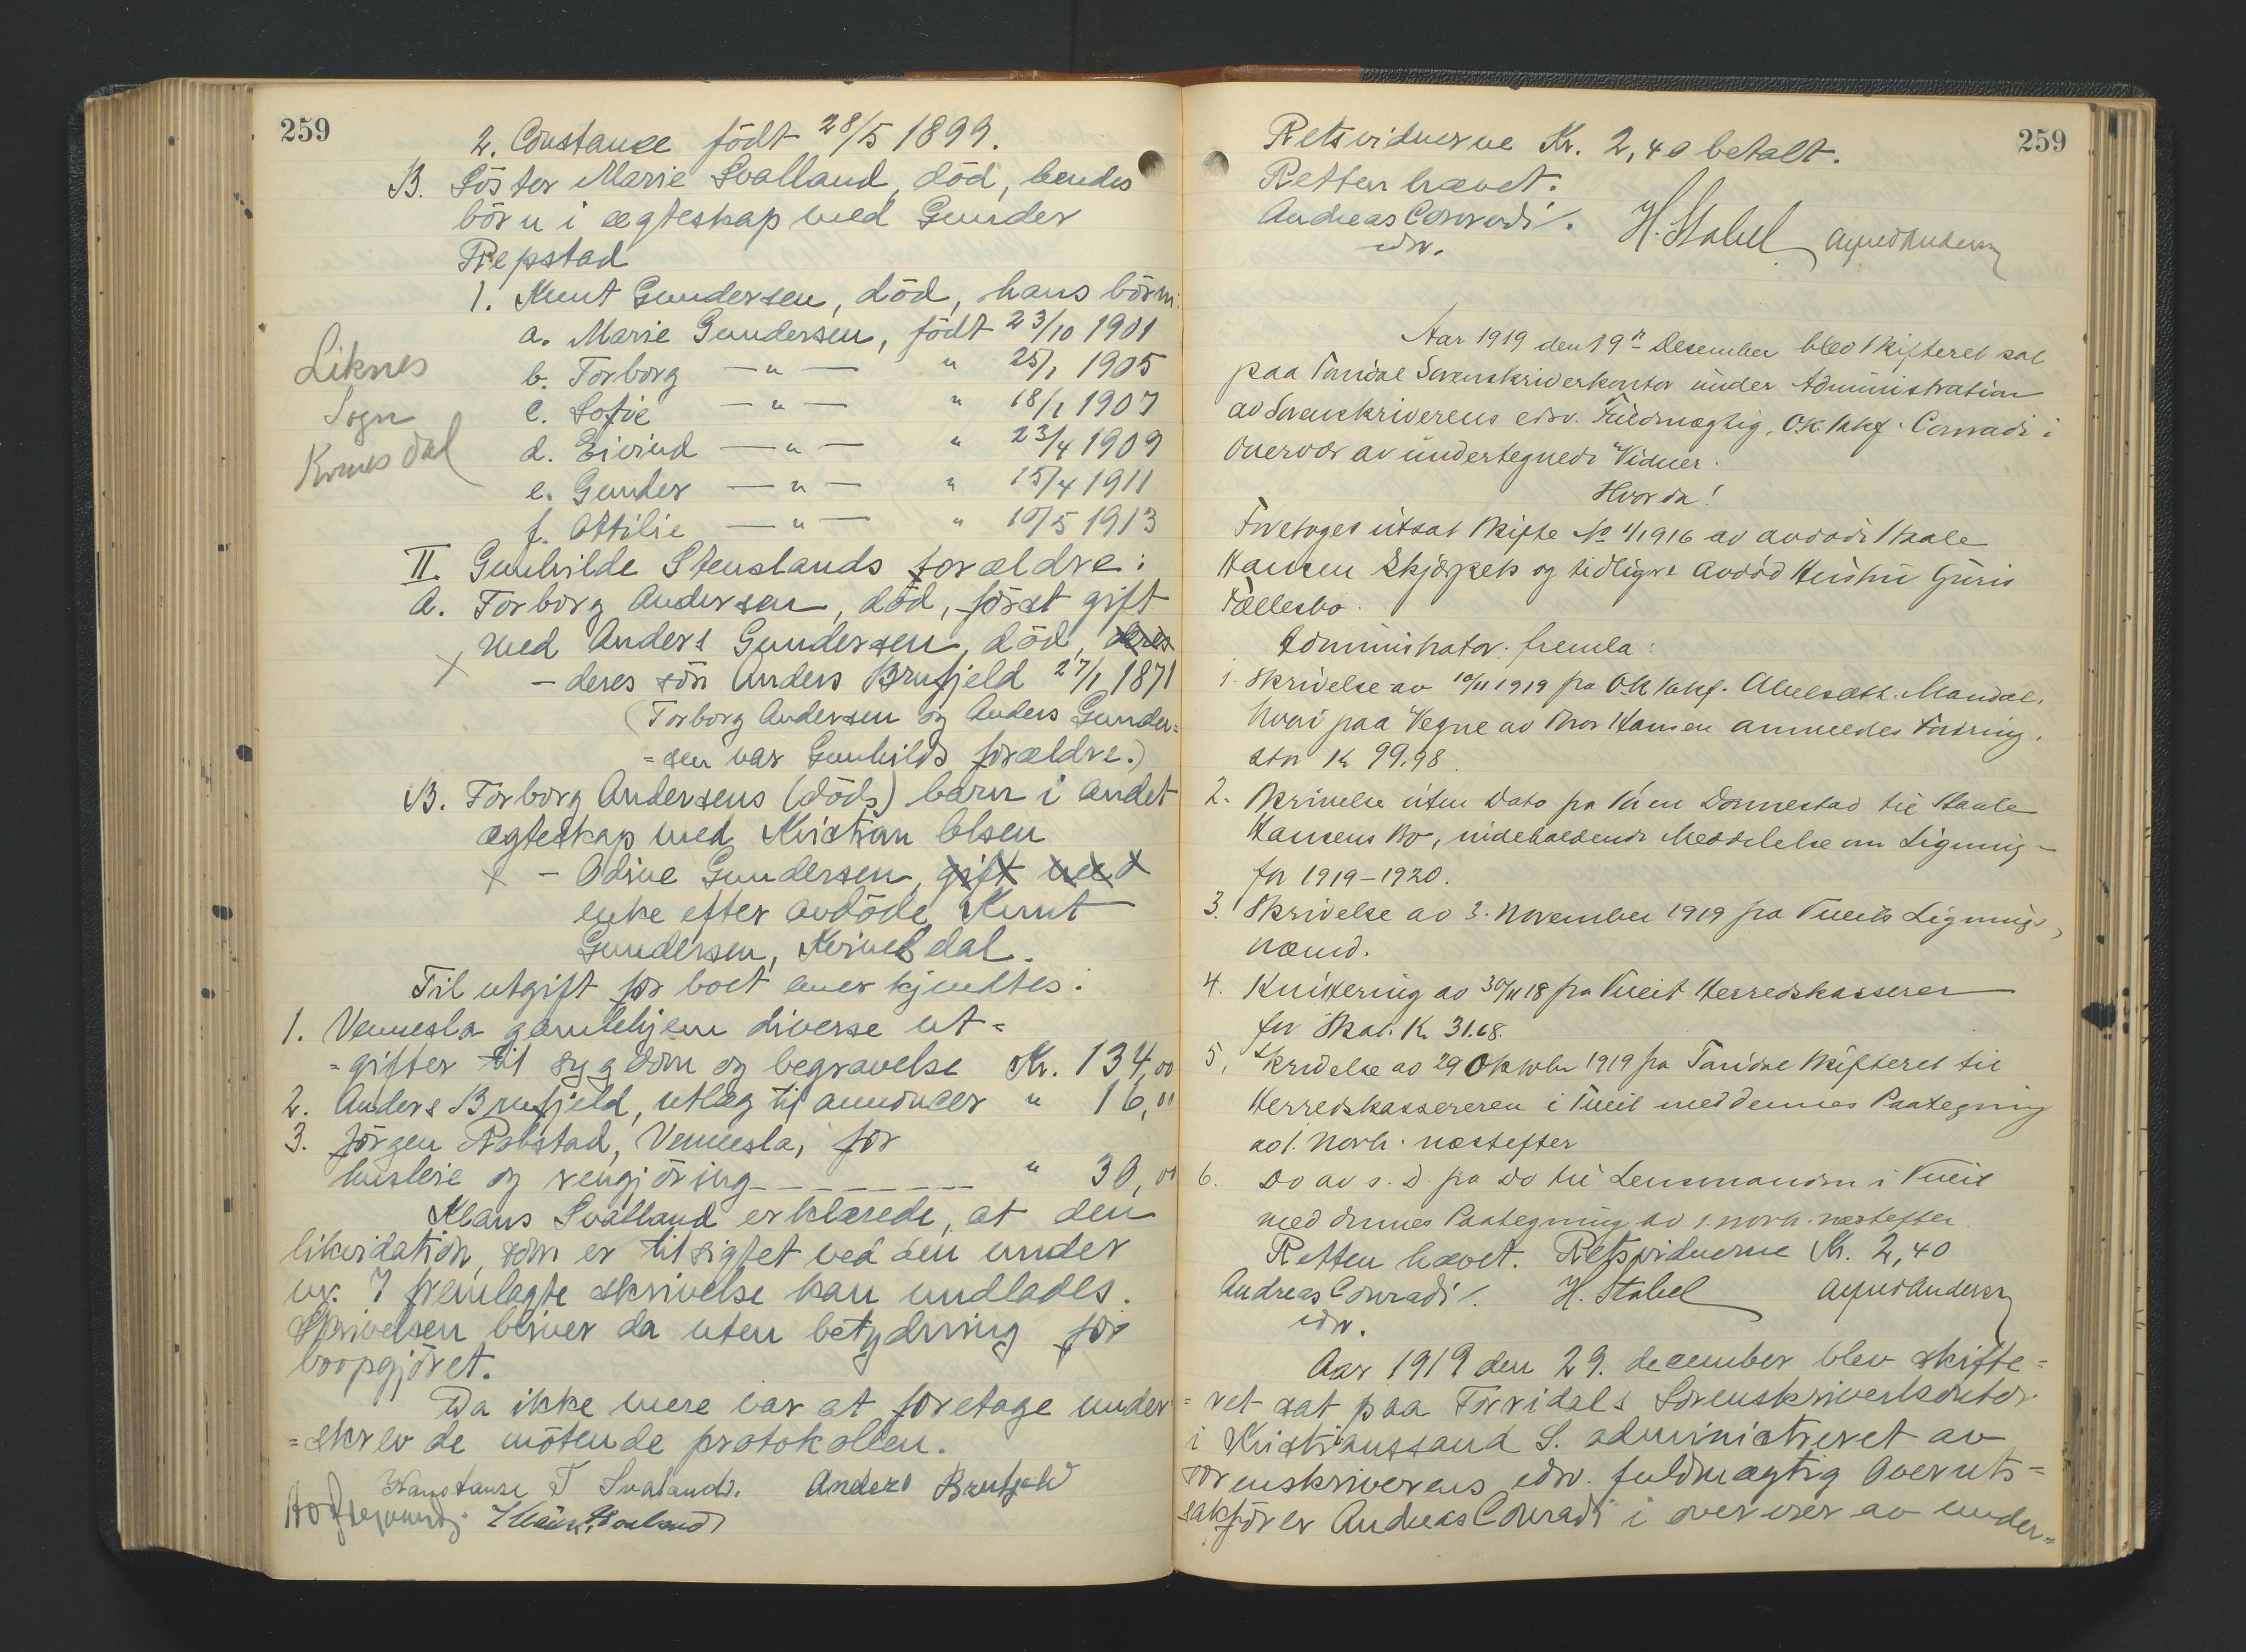 259
2. Constanse födt 28/5 1899.
B. Söster Marie Svalland, död, hendes
börn i ægteskap med Gunder
Repstad
1. Knut Gundersen, död, hans börn:
a. Marie Gundersen, födt 23/10 1901
b. Torborg —"— " 25/1 1905
c. Sofie —"— " 18/1 1907
d. Eivind —"— " 23/4 1909
e. Gunder —"— " 15/4 1911
f. Ottilie —"— " 10/5 1913
Liknes
Sogn
Kvinesdal
II. Gunhilde Stenslands forældre:
A. Torborg Andersen, död, först gift
med Anders Gundersen, död, deres
× - deres sön Anders Brufjeld 27/1 1871
(Torborg Andersen og Anders Gunder=
=sen var Gunhilds forældre.)
B. Torborg Andersens (död) barn i andet
ægteskap med Kristian Olsen
× - Odine Gundersen, gift med
enke efter avdöde Knut
Gundersen, Kvinesdal.
Til utgift for boet anerkjendtes:
1. Vennesla gamlehjem diverse ut=
=gifter til sygdom og begravelse Kr. 134,00
2. Anders Brufjeld, utlæg til annoncer " 16,00
3. Jörgen Robstad, Vennesla, for
husleie og rengjöring - - - - - - - " 30,00
Klaus Svalland erklærede, at den
likvidation, som er tilsigtet ved den under
nr. 7 fremlagte skrivelse kan undlades.
Skrivelsen bliver da uten betydning for
boopgjöret.
Da ikke mere var at foretage under=
=skrev de mötende protokollen.
Konstanse T Svaland. Anders Brufjeld
Klaus Svaland
259
Retsvidnerne Kr. 2,40 betalt.
Retten hævet.
Andreas Conradi. H. Stabel Agnes Andersen
edsv.
Aar 1919 den 19n Desember blev Skifteret sat
paa Torridal Sorenskriverkontor under Administration
av Sorenskriverens edsv. Fuldmægtig, O.R. sakf. Conradi i
Overvær av undertegnede Vidner.
Hvorda!
Foretoges utsat Skifte No 4/1916 av avdöde Staale
Hansen Skjærpek og tidligere avdød Hustru Guris
Fællesbo.
Administrator fremla:
1. Skrivelse av 10/11 1919 fra O.R. sakf. Abelseth. Mandal,
hvori paa Vegne av Thor Hansen anmeldes Fordring,
stor Kr 99.98.
2. Skrivelse uten Dato fra Sven Donnestad til Staale
Hansens Bo, indeholdende Meddelelse om Ligning
for 1919-1920.
3. Skrivelse av 3. November 1919 fra Tveits Lignings
nævnd.
4. Kvittering av 30/11 18 fra Tveit Herredskasserer
for Skat. Kr 31.68.
5. Skrivelse av 29 Oktober 1919 fra Torridal Skifteret til
Herredskassereren i Tveit med dennes Paategning
av 1. Novb. næstefter
6. Do av s. D. fra Do til Lensmanden i Tveit
med dennes Paategning av 1. novb. næstefter.
Retten hævet. Retsvidnerne Kr. 2,40
Andreas Conradi. H. Stabel Agnes Andersen
edsv.
Aar 1919 den 29. december blev skifte=
=ret sat paa Torridals Sorenskriverkontor
i Kristianssand S. administreret av
sorenskriverens edsv. fuldmægtig Overrets=
sakförer Andreas Conradi i overvær av under=